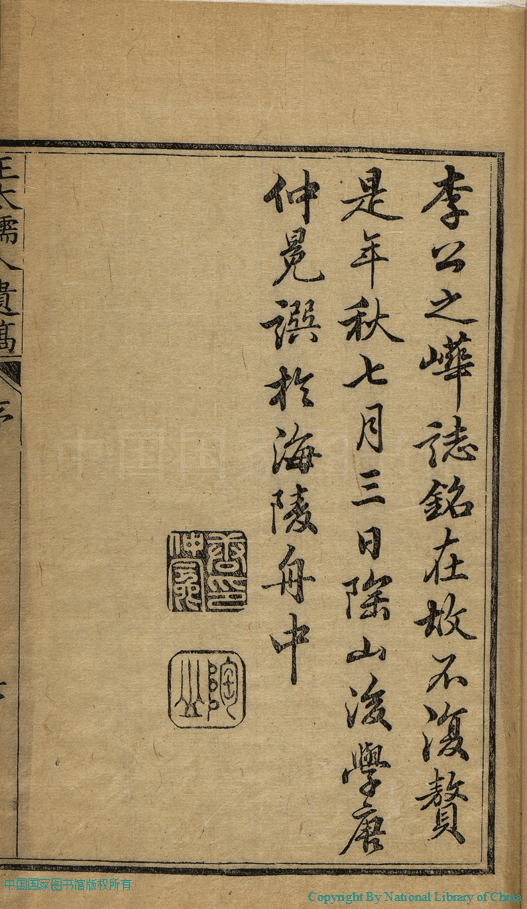 李公之嶧誌銘在故不復贅
是年秋七月三日陶山後學唐
仲冕譔於海陵舟中
唐印仲冕
陶山
王太孺人遺稿
序
中国国家图书馆版权所有
Copyright By National Library of China